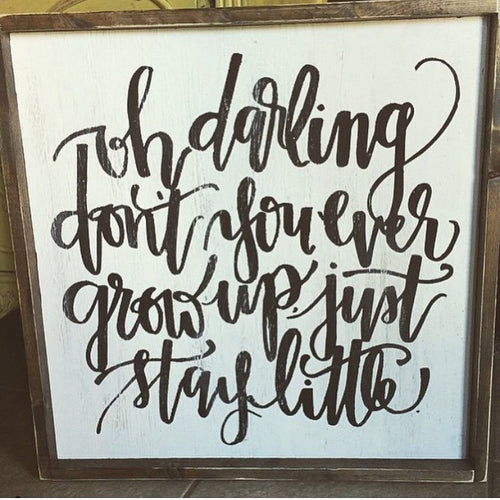 oh darling
don't you ever
grow up. just
stay little.